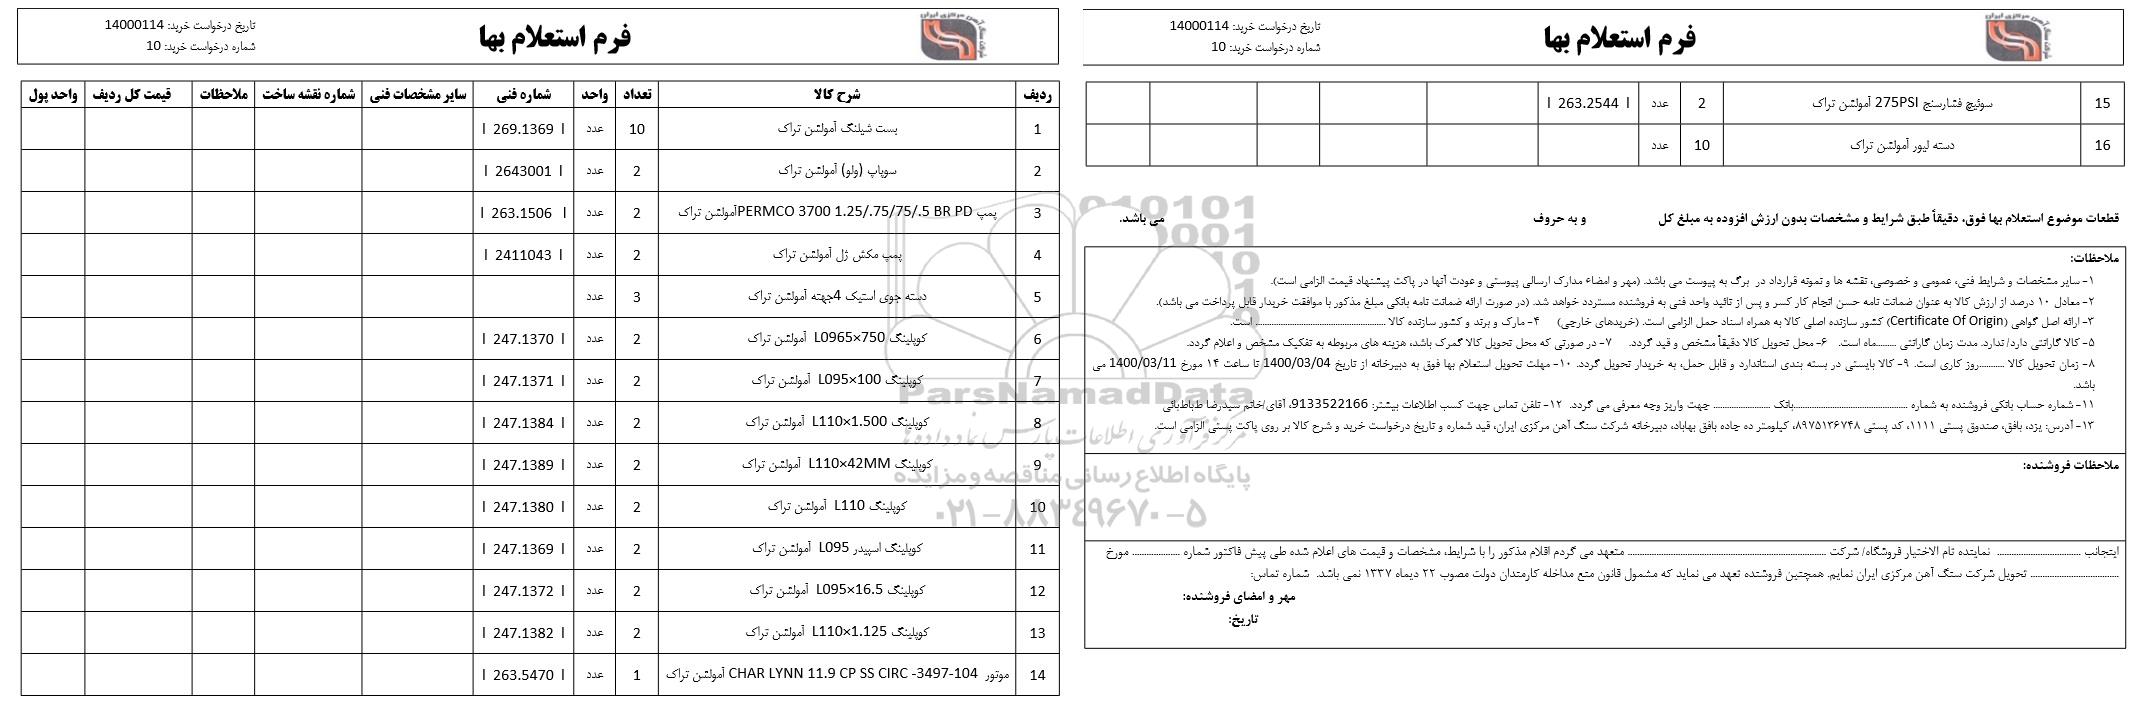 فرم استعلام بها
تاریخ درخواست خرید: 14000114
شماره درخواست خرید: 10
ردیف شرح کالا تعداد واحد شماره فنی سایر مشخصات فنی شماره نقشه ساخت ملاحظات قیمت کل ردیف واحد پول
1 بست شیلنگ آمولشن تراک 10 عدد | 269.1369 |
2 سوپاپ (ولو) آمولشن تراک 2 عدد | 2643001 |
3 پمپ PERMCO 3700 1.25/.75/75/.5 BR PDآمولشن تراک 2 عدد | 263.1506 |
4 پمپ مکش ژل آمولشن تراک 2 عدد | 2411043 |
5 دسته جوی استیک 4جهته آمولشن تراک 3 عدد
6 کوپلینگ L0965×750 آمولشن تراک 2 عدد | 247.1370 |
7 کوپلینگ L095×100 آمولشن تراک 2 عدد | 247.1371 |
8 کوپلینگ L110×1.500 آمولشن تراک 2 عدد | 247.1384 |
9 کوپلینگ L110×42MM آمولشن تراک 2 عدد | 247.1389 |
10 کوپلینگ L110 آمولشن تراک 2 عدد | 247.1380 |
11 کوپلینگ اسپیدر L095 آمولشن تراک 2 عدد | 247.1369 |
12 کوپلینگ L095×16.5 آمولشن تراک 2 عدد | 247.1372 |
13 کوپلینگ L110×1.125 آمولشن تراک 2 عدد | 247.1382 |
14 موتور CHAR LYNN 11.9 CP SS CIRC -3497-104 آمولشن تراک 1 عدد | 263.5470 |
فرم استعلام بها
تاریخ درخواست خرید: 14000114
شماره درخواست خرید: 10
15 سوئیچ فشارسنج 275PSI آمولشن تراک 2 عدد | 263.2544 |
16 دسته لیور آمولشن تراک 10 عدد
قطعات موضوع استعلام بها فوق، دقیقاً طبق شرایط و مشخصات بدون ارزش افزوده به مبلغ کل و به حروف می باشد.
ملاحظات:
۱- سایر مشخصات و شرایط فنی، عمومی و خصوصی، نقشه ها و نمونه قرارداد در برگ به پیوست می باشد. (مهر و امضاء مدارک ارسالی پیوستی و عودت آنها در پاکت پیشنهاد قیمت الزامی است).
۲- معادل ۱۰ درصد از ارزش کالا به عنوان ضمانت نامه حسن انجام کار کسر و پس از تائید واحد فنی به فروشنده مسترد خواهد شد. (در صورت ارائه ضمانت نامه بانکی مبلغ مذکور با موافقت خریدار قابل پرداخت می باشد).
۳- ارائه اصل گواهی (Certificate Of Origin) کشور سازنده اصلی کالا به همراه اسناد حمل الزامی است. (خریدهای خارجی) ۴- مارک و برند و کشور سازنده کالا .......... است.
۵- کالا گارانتی دارد/ ندارد. مدت زمان گارانتی ........ماه است. ۶- محل تحویل کالا دقیقاً مشخص و قید گردد. ۷- در صورتی که محل تحویل کالا گمرک باشد، هزینه های مربوطه به تفکیک مشخص و اعلام گردد.
۸- زمان تحویل کالا ..........روز کاری است. ۹- کالا بایستی در بسته بندی استاندارد و قابل حمل، به خریدار تحویل گردد. ۱۰- مهلت تحویل استعلام بها فوق به دبیرخانه از تاریخ 1400/03/04 تا ساعت ۱۴ مورخ 1400/03/11 می
باشد.
۱۱- شماره حساب بانکی فروشنده به شماره ..........بانک .......... جهت واریز وجه معرفی می گردد. ۱۲- تلفن تماس جهت کسب اطلاعات بیشتر: 9133522166، آقای/خانم سیدرضا طباطبائی
۱۳- آدرس: یزد، بافق، صندوق پستی ۱۱۱۱، کد پستی ۸۹۷۵۱۳۶۷۴۸، کیلومتر ده جاده بافق بهاباد، دبیرخانه شرکت سنگ آهن مرکزی ایران، قید شماره و تاریخ درخواست خرید و شرح کالا بر روی پاکت پستی الزامی است.
ملاحظات فروشنده:
اینجانب .......... نماینده تام الاختیار فروشگاه/ شرکت .......... متعهد می گردم اقلام مذکور را با شرایط، مشخصات و قیمت های اعلام شده طی پیش فاکتور شماره .......... مورخ
.......... تحویل شرکت سنگ آهن مرکزی ایران نمایم. همچنین فروشنده تعهد می نماید که مشمول قانون منع مداخله کارمندان دولت مصوب ۲۲ دیماه ۱۳۳۷ نمی باشد. شماره تماس:
مهر و امضای فروشنده:
تاریخ:
ParsNamadData
مرکز فرآوری اطلاعات پارس نماد داده ها
پایگاه اطلاع رسانی مناقصه و مزایده
۰۲۱-۸۸۳۴۹۶۷۰-۵